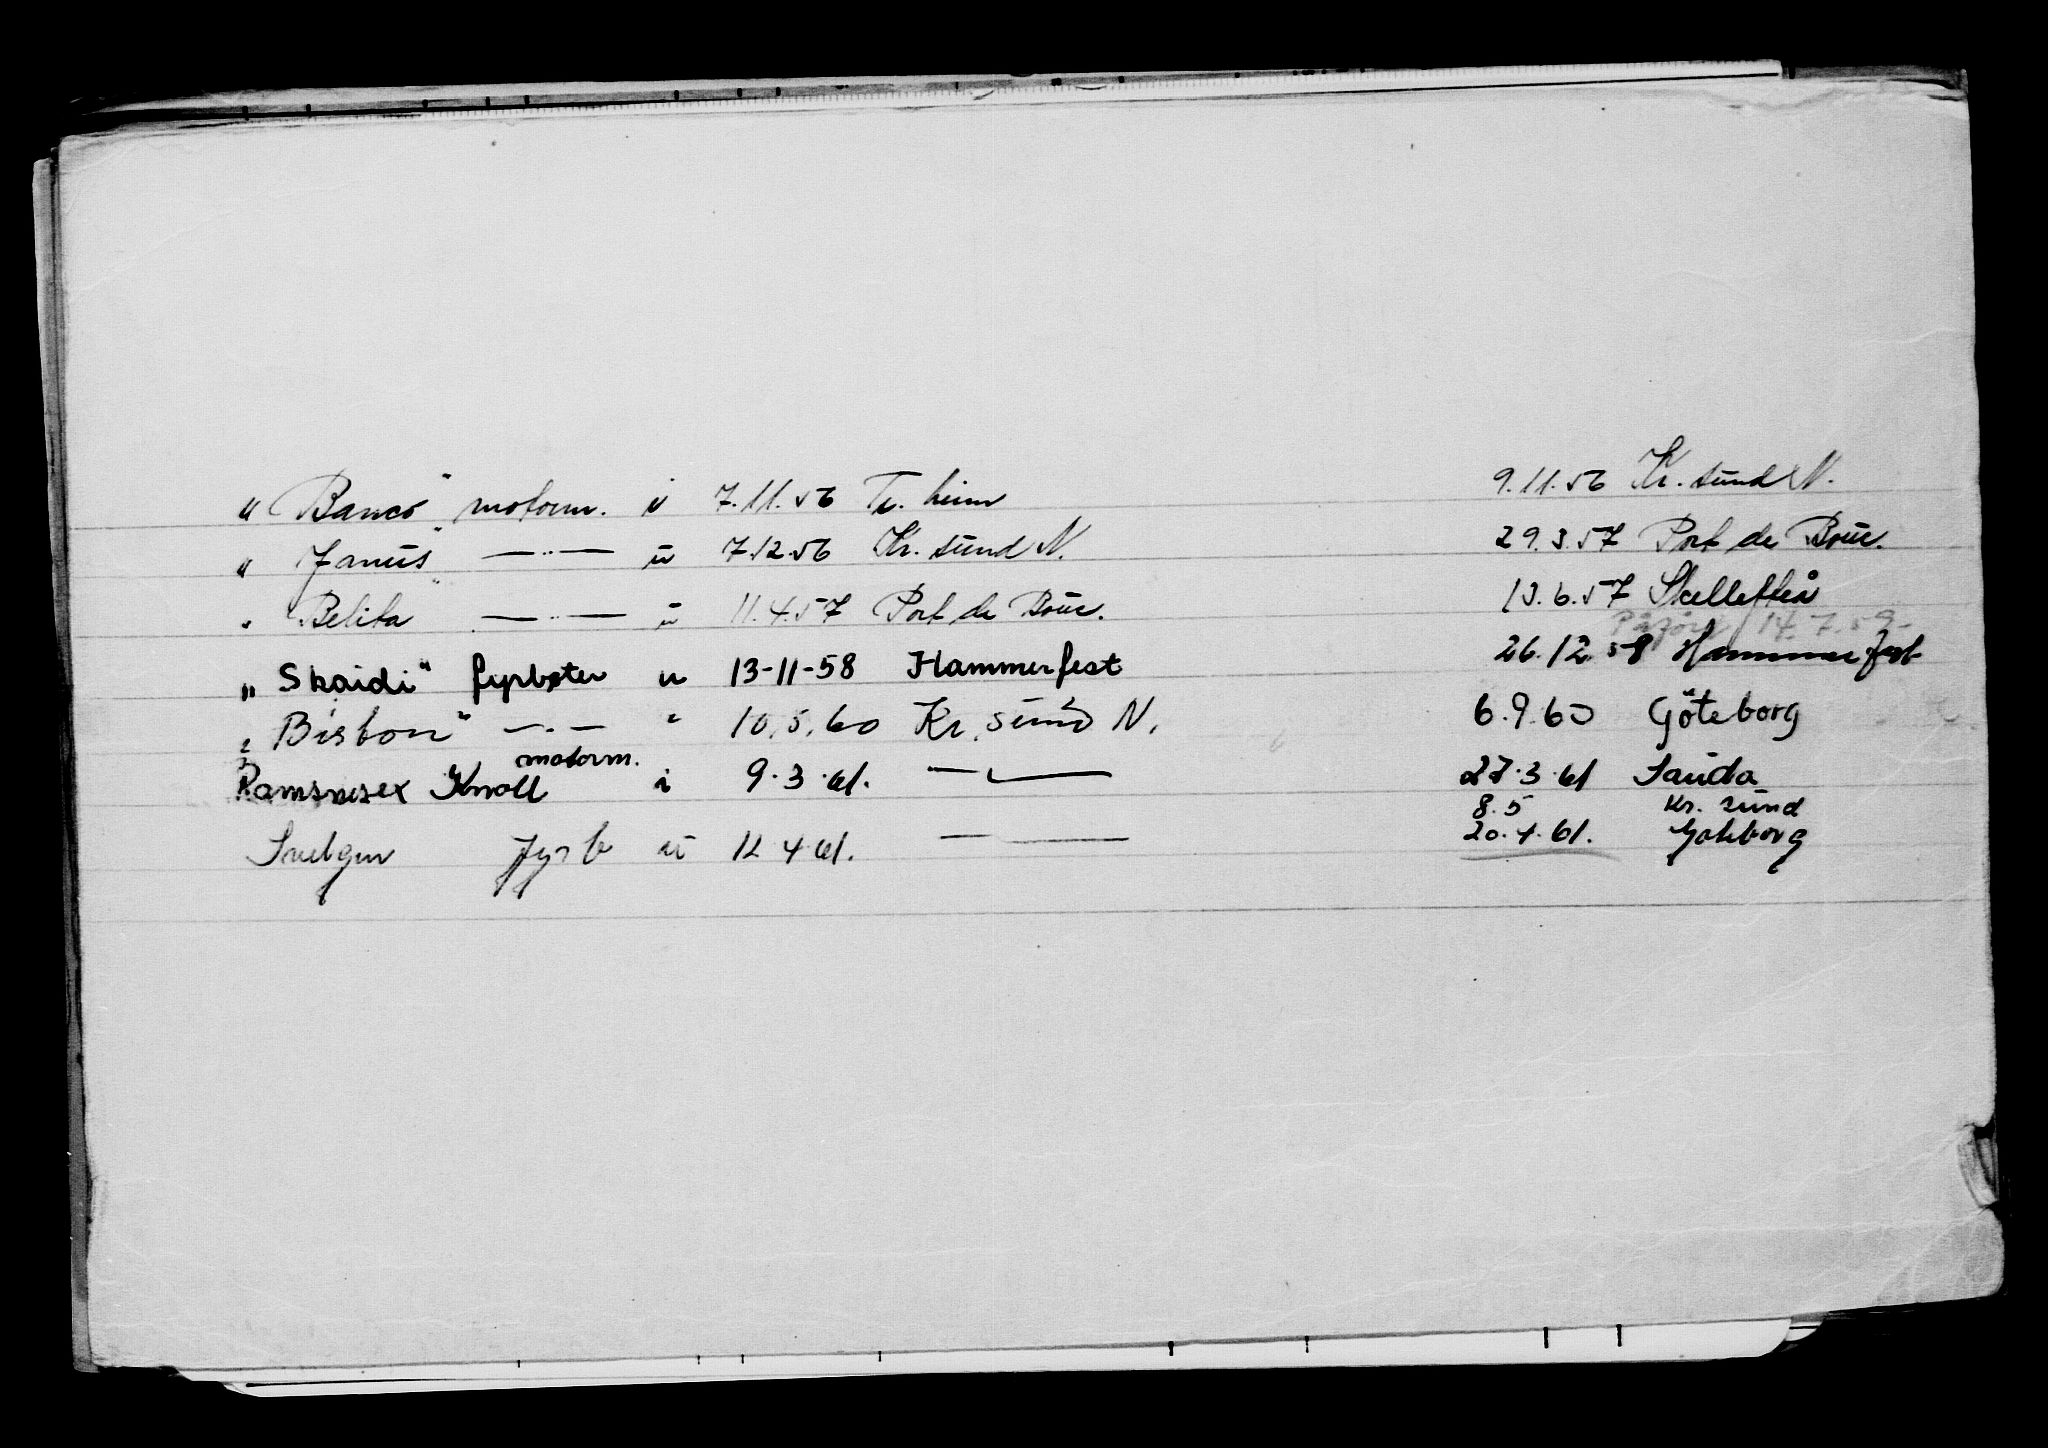 " Banco" motorm. i 7.11.56 Tr. heim 9.11.56 Kr. sund N.
" Janus" —"— u 7.12.56 Kr. sund N. 29.3.57 Port de Bouc.
" Belita" —"— u 11.4.57 Port de Bouc. 13.6.57 Skellefteå
Påfør 14.7.59-
" Skaidi" fyrbøter u 13-11-58 Hammerfest 26.12.58 Hammerfest
" Bisbon" —"— " 10.5.60 Kr. sund N. 6.9.60 Göteborg
motorm.
Ramsnesex Knoll i 9.3.61. —"— 27.3.61 Sauda
8.5 Kr. sund
Svelgen fyrb u 12 4 61. —"— 20.4.61. Goteborg